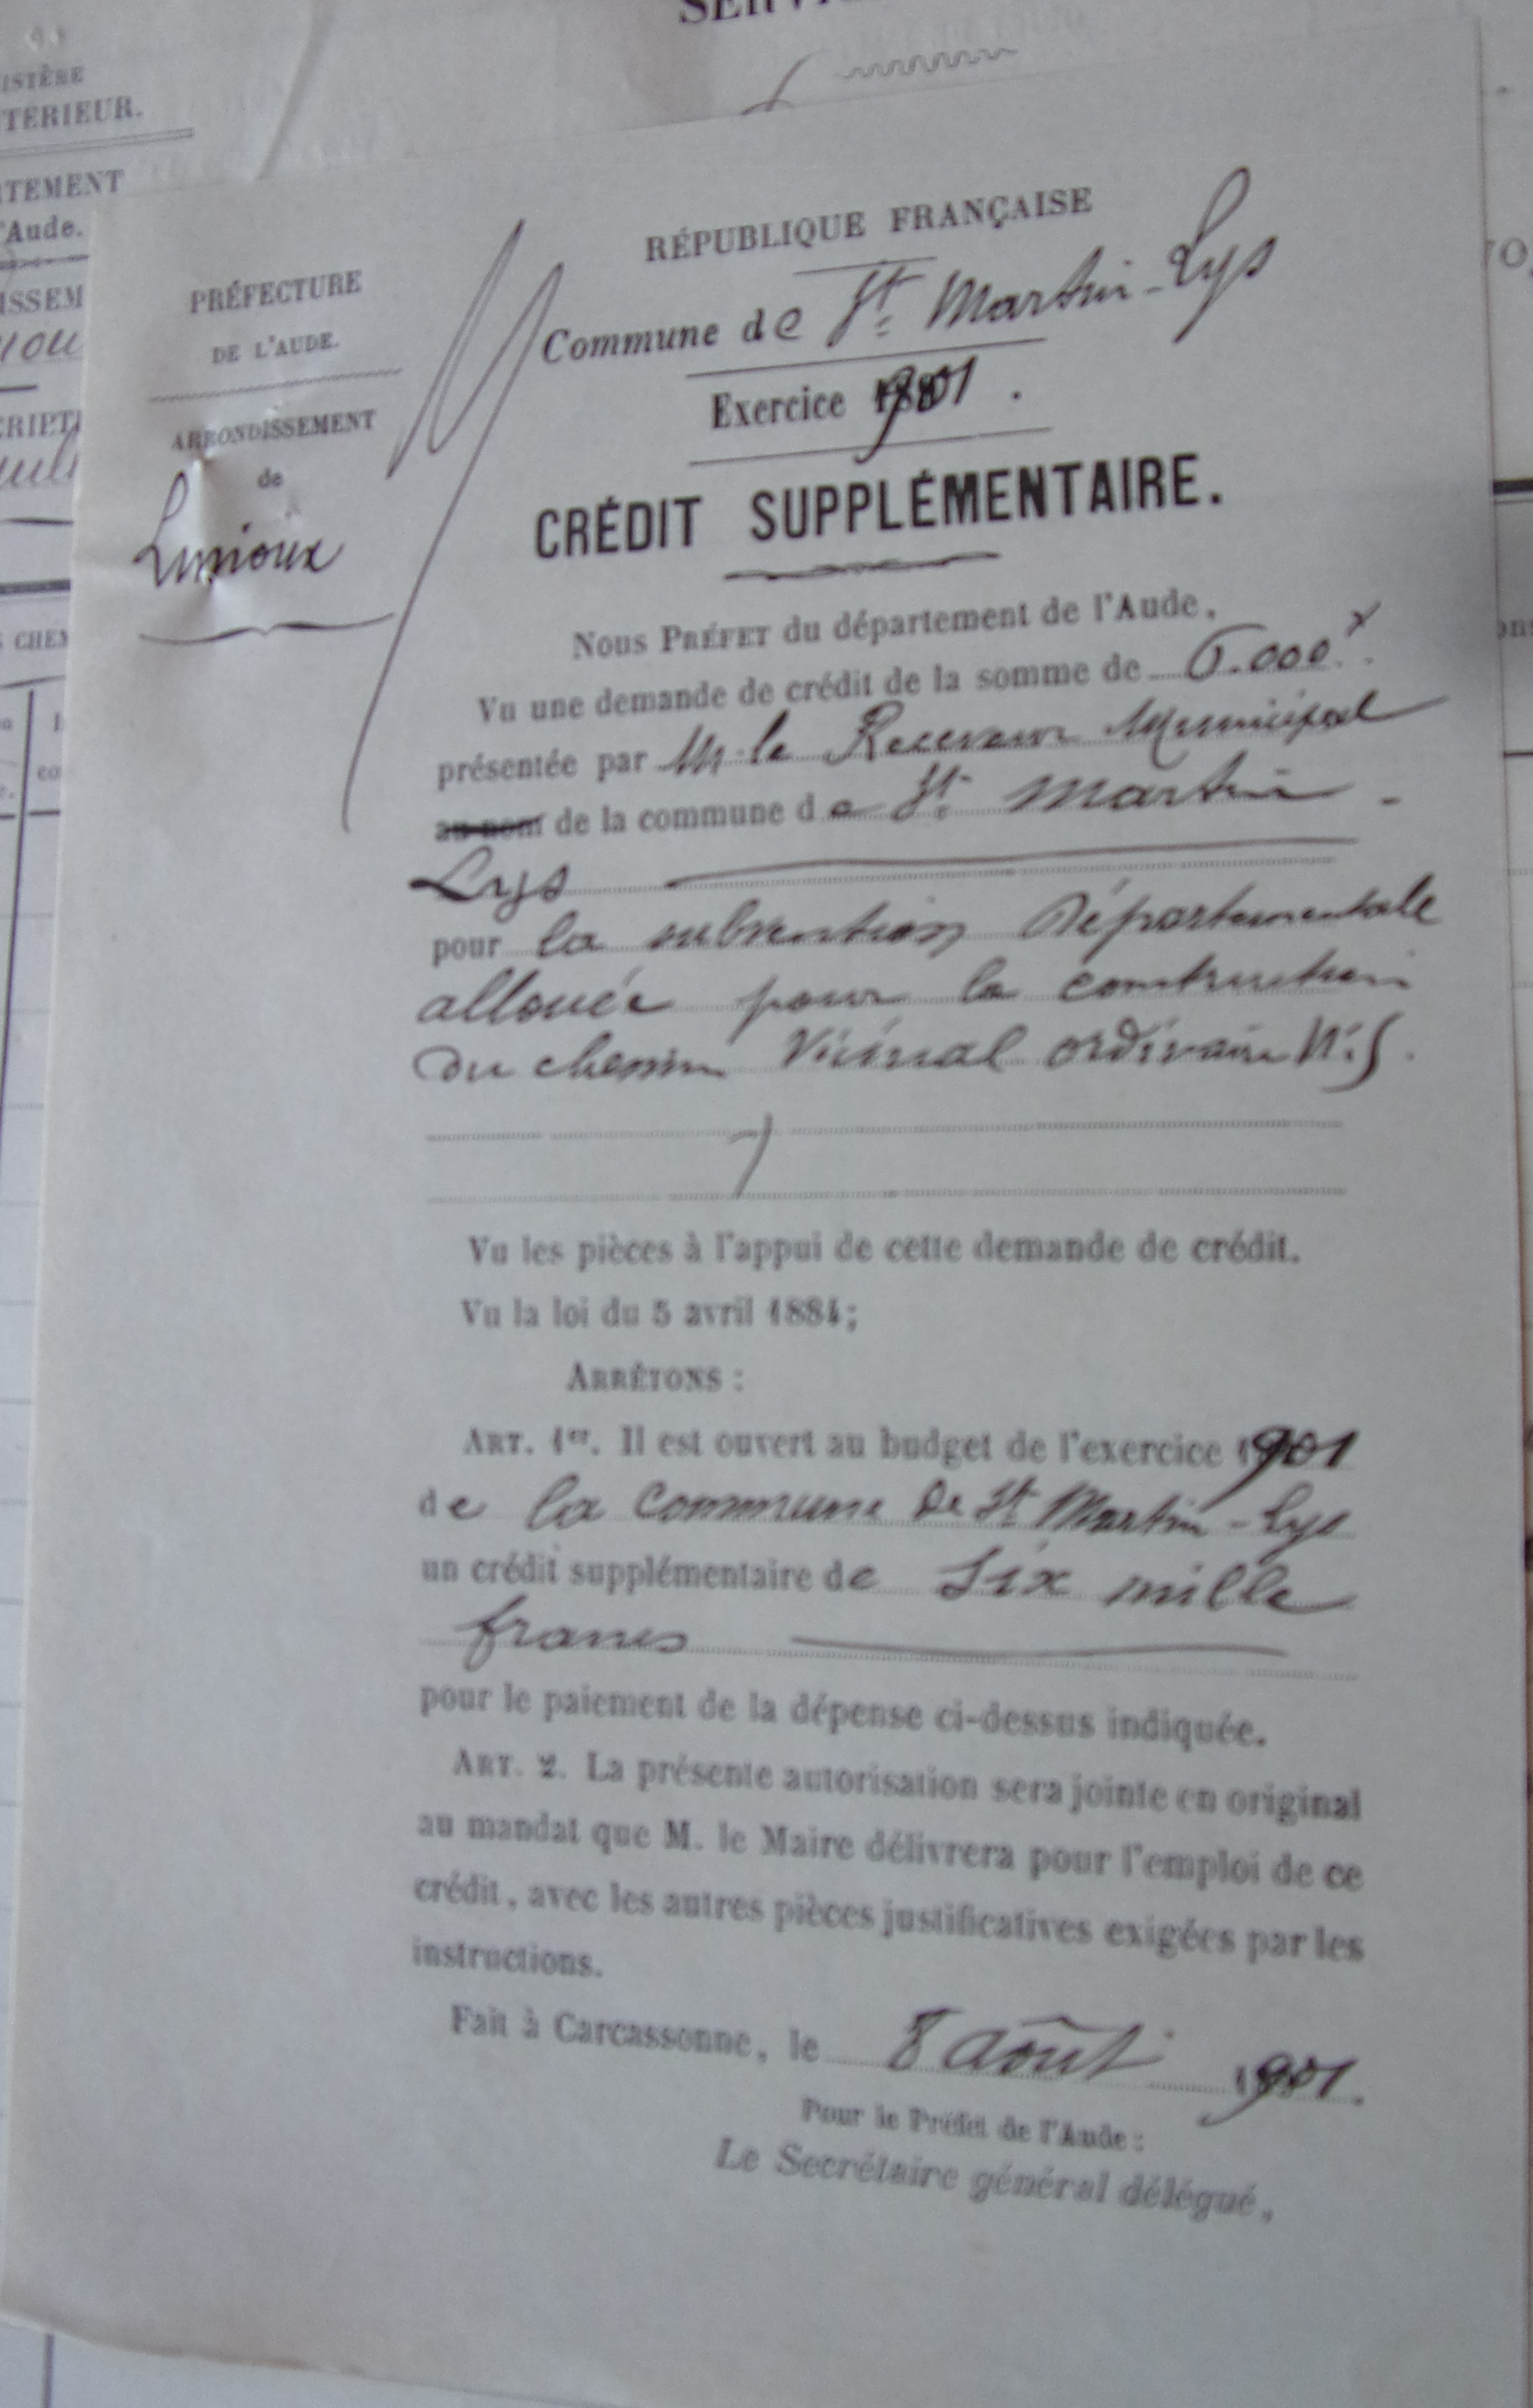 SERV
ISTÈRE
TERIEUR.
RTEMENT
l'Aude.
ISSEM
CRIPTI
CHEM
PRÉFECTURE
DE L'AUDE.
ARRONDISSEMENT
de
Limoux
RÉPUBLIQUE FRANÇAISE
Commune de St Martin-Lys
Exercice 1901.
CRÉDIT SUPPLÉMENTAIRE.
Nous PRÉFET du département de l'Aude,
Vu une demande de crédit de la somme de 6.000f.
présentée par Mr le Receveur Municipal
au nom de la commune de St Martin-
Lys
pour la subvention Départementale
allouée pour la construction
du chemin Vicinal ordinaire N: 5.
Vu les pièces à l'appui de cette demande de crédit.
Vu la loi du 5 avril 1884;
ARRÊTONS :
ART. 1er. Il est ouvert au budget de l'exercice 1901
de la Commune de St Martin-Lys
un crédit supplémentaire de Six mille
francs
pour le paiement de la dépense ci-dessus indiquée.
ART. 2. La présente autorisation sera jointe en original
au mandat que M. le Maire délivrera pour l'emploi de ce
crédit, avec les autres pièces justificatives exigées par les
instructions.
Fait à Carcassonne, le 8 août 1901.
Pour le Préfet de l'Aude :
Le Secrétaire général délégué,